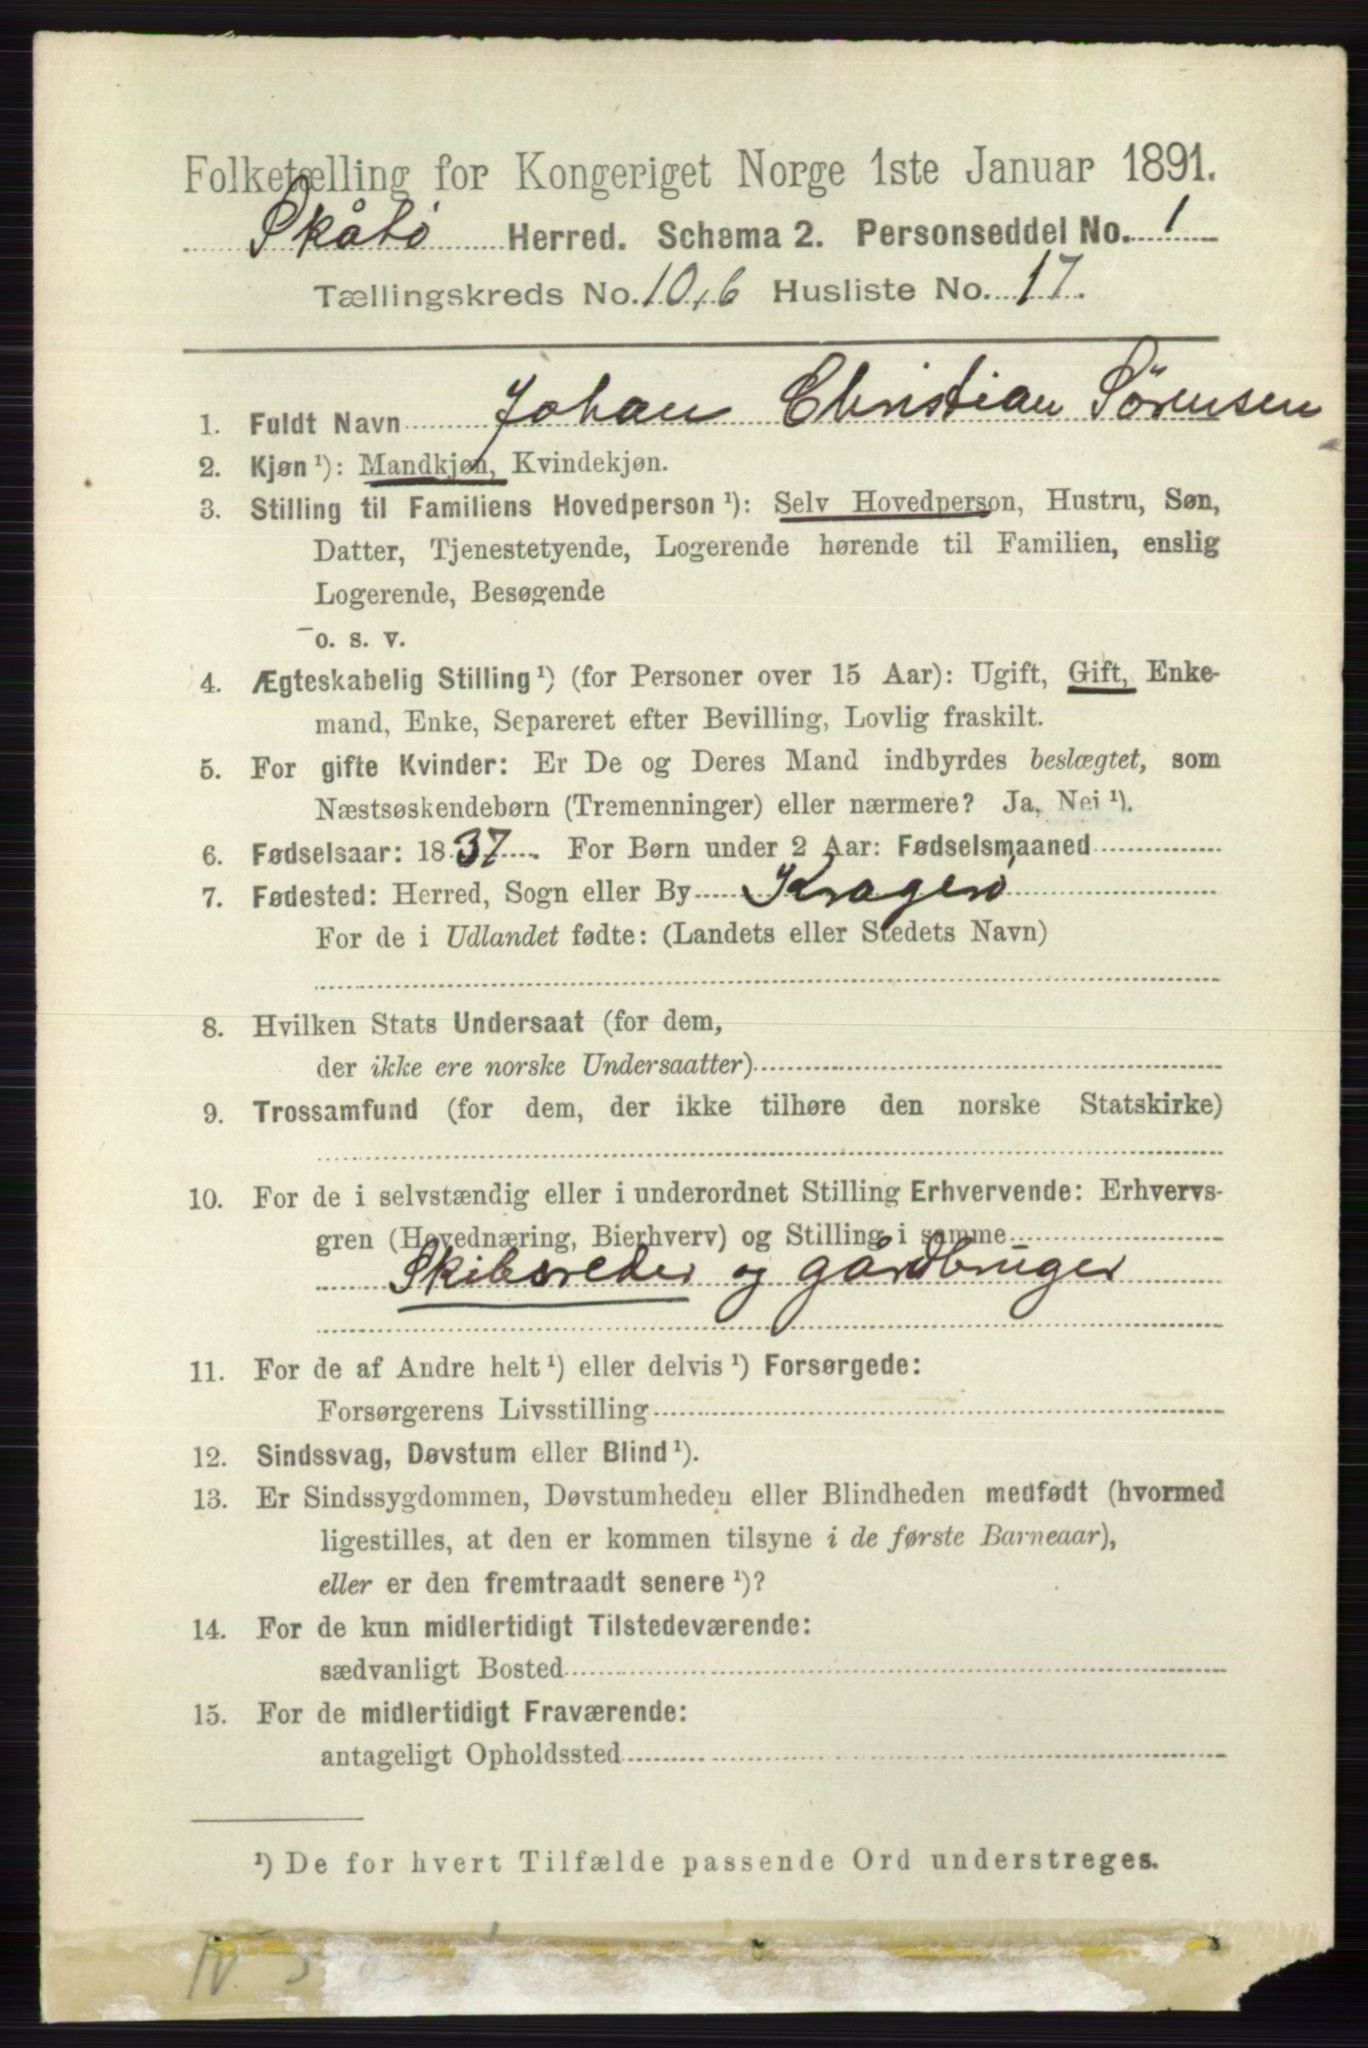 Folketælling for Kongeriget Norge 1ste Januar 1891.
Skåtø Herred. Schema 2. Personseddel No. 1
Tællingskreds No. 10,6 Husliste No. 17.
1. Fuldt Navn Johan Christian Sörensen
2. Kjøn¹): Mandkjøn, Kvindekjøn.
3. Stilling til Familiens Hovedperson¹): Selv Hovedperson, Hustru, Søn,
Datter, Tjenestetyende, Logerende hørende til Familien, enslig
Logerende, Besøgende
o. s. v.
4. Ægteskabelig Stilling¹) (for Personer over 15 Aar): Ugift, Gift, Enke-
mand, Enke, Separeret efter Bevilling, Lovlig fraskilt.
5. For gifte Kvinder: Er De og Deres Mand indbyrdes beslægtet, som
Næstsøskendebørn (Tremenninger) eller nærmere? Ja, Nei¹).
6. Fødselsaar: 1837. For Børn under 2 Aar: Fødselsmaaned
7. Fødested: Herred, Sogn eller By Kragerø
For de i Udlandet fødte: (Landets eller Stedets Navn)
8. Hvilken Stats Undersaat (for dem,
der ikke ere norske Undersaatter)
9. Trossamfund (for dem, der ikke tilhøre den norske Statskirke)
10. For de i selvstændig eller i underordnet Stilling Erhvervende: Erhvervs-
gren (Hovednæring, Bierhverv) og Stilling i samme
Skibsreder og gårdbruger
11. For de af Andre helt¹) eller delvis¹) Forsørgede:
Forsørgerens Livsstilling
12. Sindssvag, Døvstum eller Blind¹).
13. Er Sindssygdommen, Døvstumheden eller Blindheden medfødt (hvormed
ligestilles, at den er kommen tilsyne i de første Barneaar),
eller er den fremtraadt senere¹)?
14. For de kun midlertidigt Tilstedeværende:
sædvanligt Bosted
15. For de midlertidigt Fraværende:
antageligt Opholdssted
¹) De for hvert Tilfælde passende Ord understreges.